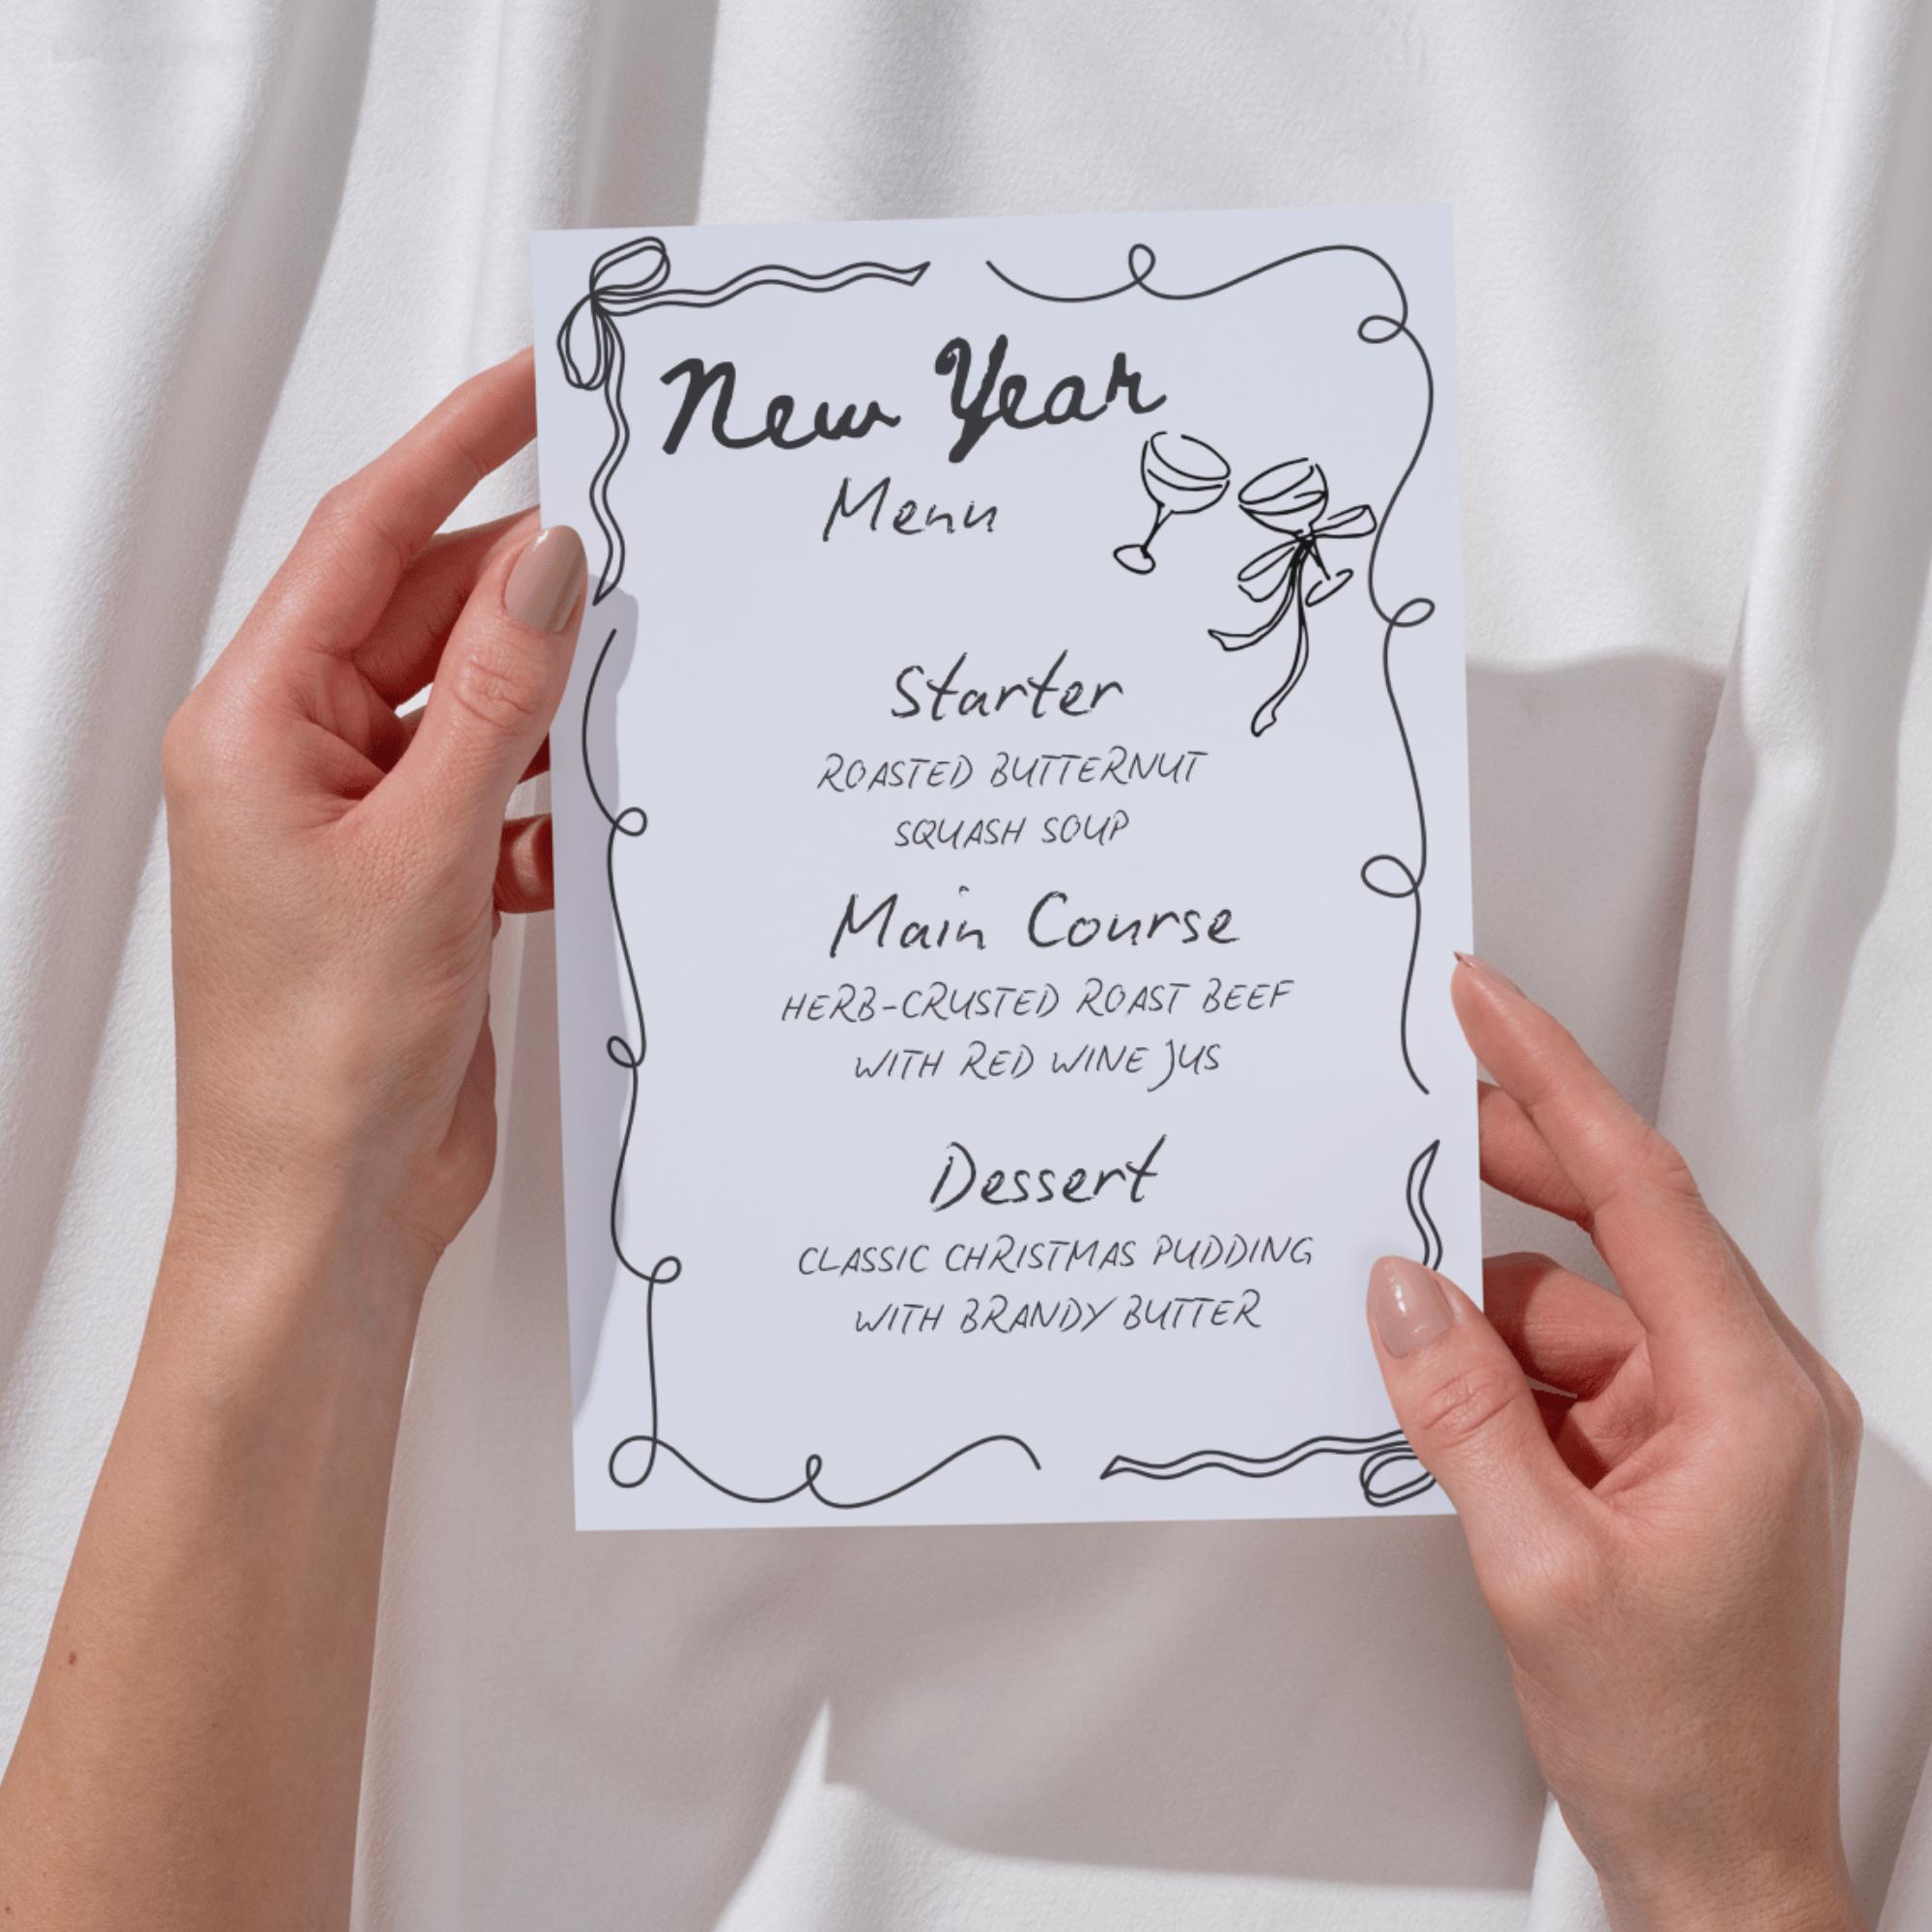 New Year
Menu
Starter
ROASTED BUTTERNUT
SQUASH SOUP
Main Course
HERB-CRUSTED ROAST BEEF
WITH RED WINE JUS
Dessert
CLASSIC CHRISTMAS PUDDING
WITH BRANDY BUTTER